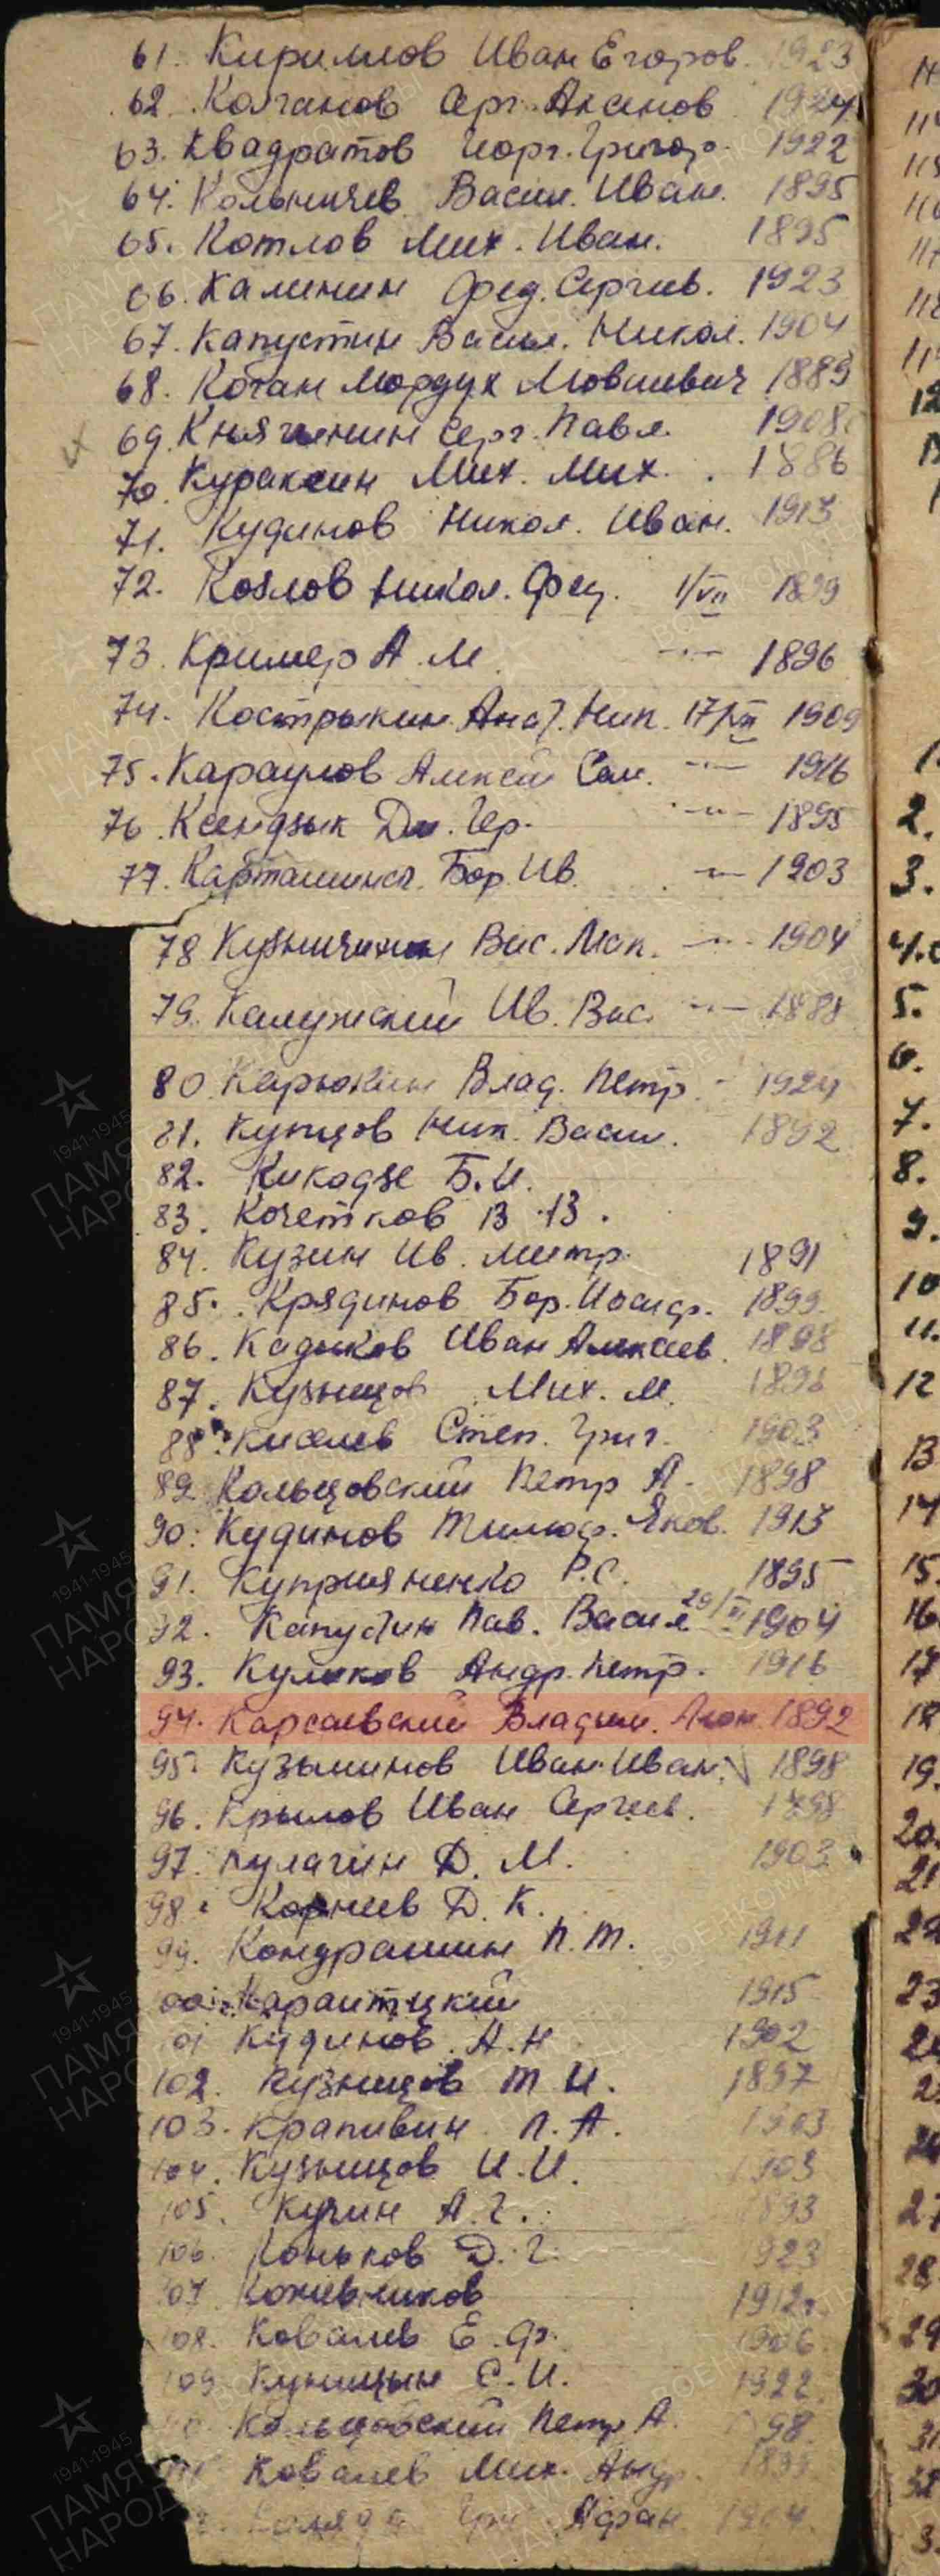 61. Кириллов Иван Егоров. 1923
62. Колганов Серг. Аксенов 1924
63. Квадратов Георг. Григор. 1922
64. Колыничев Васил. Иван. 1895
65. Котлов Мих. Иван. 1895
66. Калинин Фед. Сергеев. 1923
67. Капустин Васил. Никол. 1904
68. Коган Мордух Мовшевич 1889
69. Княгинин Серг. Павл. 1908
70. Кураксин Мих. Мих. 1886
71. Кудинов Никол. Иван. 1913
72. Козлов Никол. Фед. 1/VII 1899
73. Кример А. М. —"— 1896
74. Кострыкин Анат. Ник. 17/VII 1909
75. Караулов Алексей Сем. —"— 1916
76. Ксендзык Дм. Гер. —"— 1895
77. Карташинск. Бор. Ив. —"— 1903
78. Кузьмичкин Вас. —"— 1904
79. Калужский Ив. Вас. —"— 1888
80. Карюкин Влад. Петр. 1924
81. Купцов Ник. Васил. 1892
82. Кикодзе Б. И.
83. Кочетков В. В.
84. Кузин Ив. Митр. 1891
85. Крядинов Бор. Иосиф. 1899
86. Кадыков Иван Алексеев. 1898
87. Кузнецов Мих. М. 1898
88. Киселев Степ. Григ. 1903
89. Кольцовский Петр А. 1898
90. Кудинов Тимоф. Яков. 1913
91. Куприяненко Р. С. 1895
92. Капустин Пав. Васил 1904
93. Куликов Андр. Петр. 1916
94. Карсаевский Владим. Леон. 1892
95. Кузьминов Иван Иван. 1898
96. Крылов Иван Сергеев. 1898
97. Кулагин Д. М. 1903
98. Корнеев Д. К.
99. Кондрашин П. Т. 1911
00. Караитцкий 1915
01 Кудинов А. Н 1902
102. Кузнецов Т. И. 1897
103. Крапивин П. А. 1903
104. Кузнецов И. И. 1903
105. Кугин А. Г. 893
106. Коньков Д. Г. 923
107. Кожевников 1912
108. Ковалев Е. Ф. 1906
109 Куницын С. И. 1922
Кольцовский Петр А. 98
Ковалев Мих. Андр.
Афан. 1904
2.
3.
4.
5.
6.
7.
8.
9.
10
11.
12
13
14
15.
16
17
18
19.
20.
21
22
23
24
27
28.
29
30
31.
32